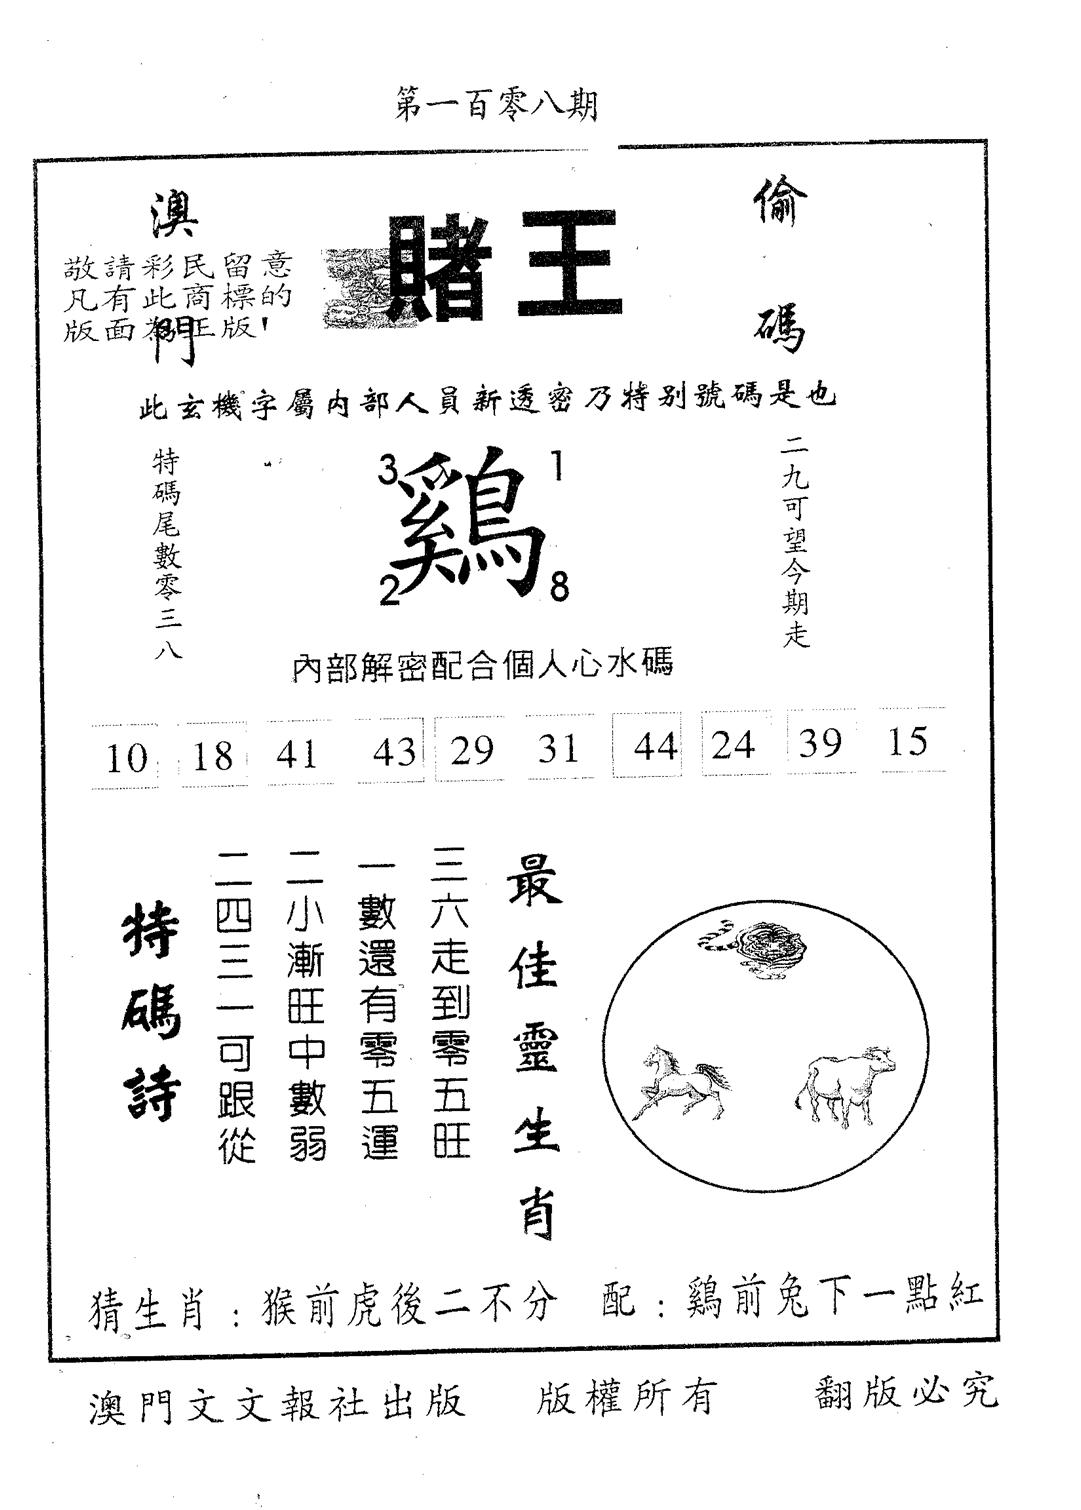 第一百零八期
澳門
敬請彩民留意
凡有此商標的
版面為正版!
賭王
偷碼
此玄機字屬内部人員新透密乃特别號碼是也
特碼尾數零三八
3 1
鷄
2 8
二九可望今期走
內部解密配合個人心水碼
10 18 41 43 29 31 44 24 39 15
最佳靈生肖
三六走到零五旺
一數還有零五運
二小漸旺中數弱
二四三一可跟從
特碼詩
猜生肖:猴前虎後二不分 配:鷄前兔下一點紅
澳門文文報社出版 版權所有 翻版必究